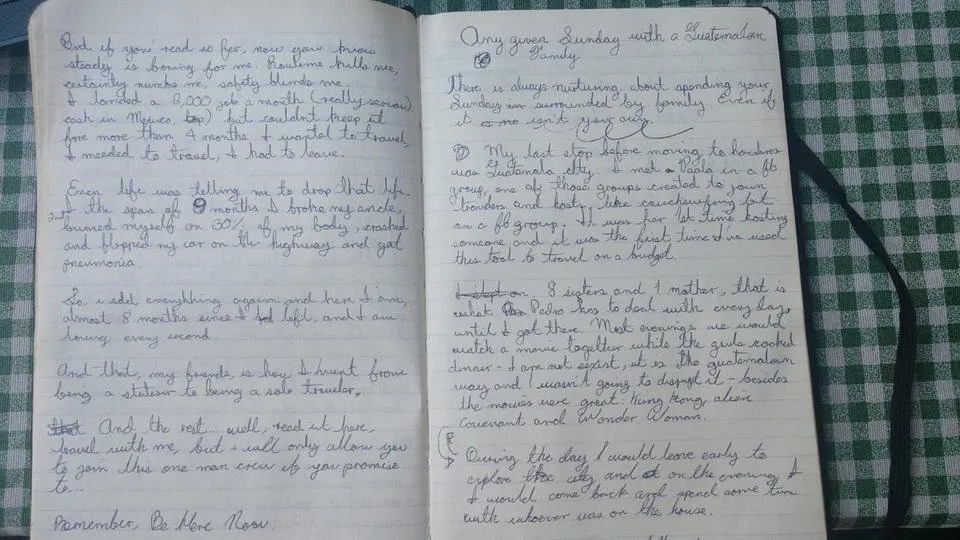 But if you'read so far, now you know
steady is boring for me. Routeme kills me,
certainty numbs me, safety blinds me.
I landed a 2,000 job a month (really serious
cash in Mexico) but couldnt keep it
fore more than 4 months. I wanted to travel,
I needed to travel, I had to leave.
Even life was telling me to drop that life
I the span of 9 months I broke my ancle,
burned myself on 30% of my body, crashed
and flopped my car on the highway and got
pneumonia.
So, i sold everything again, and here I am,
almost 8 months since I left, and I am
loving every second.
And that, my friends, is how I went from
being a stater to being a solo traveler,
And the rest... well, read it here,
travel with me, but i will only allow you
to join this one man crew if you promise
to...
Remember, Be Here Now
Any given Sunday with a Guatemalan
Family
There is always nurturing about spending your
Sunday surrounded by family. Even if
it isn't your own
My last stop before moving to honduras
was Guatamala city. I met Paola in a fb
group, one of those groups created to join
travelers and hosts, like couchsurfing but
on a fb group. It was her 1st time hosting
someone and it was the first time I've used
this tool to travel on a budget.
I slept on. 3 sisters and 1 mother, that is
what Pedro has to deal with every day,
until I got there. Most evenings we would
watch a movie together while the girls cooked
dinner - I am not sexist, it is the guatemalan
way and I wasn't going to disrupt it - besides
the movies were great: Kung Kong, alien
covenant and Wonder Woman.
During the day I would leave early to
explore the city and on the evening I
I would come back and spend some time
with whoever was on the house.